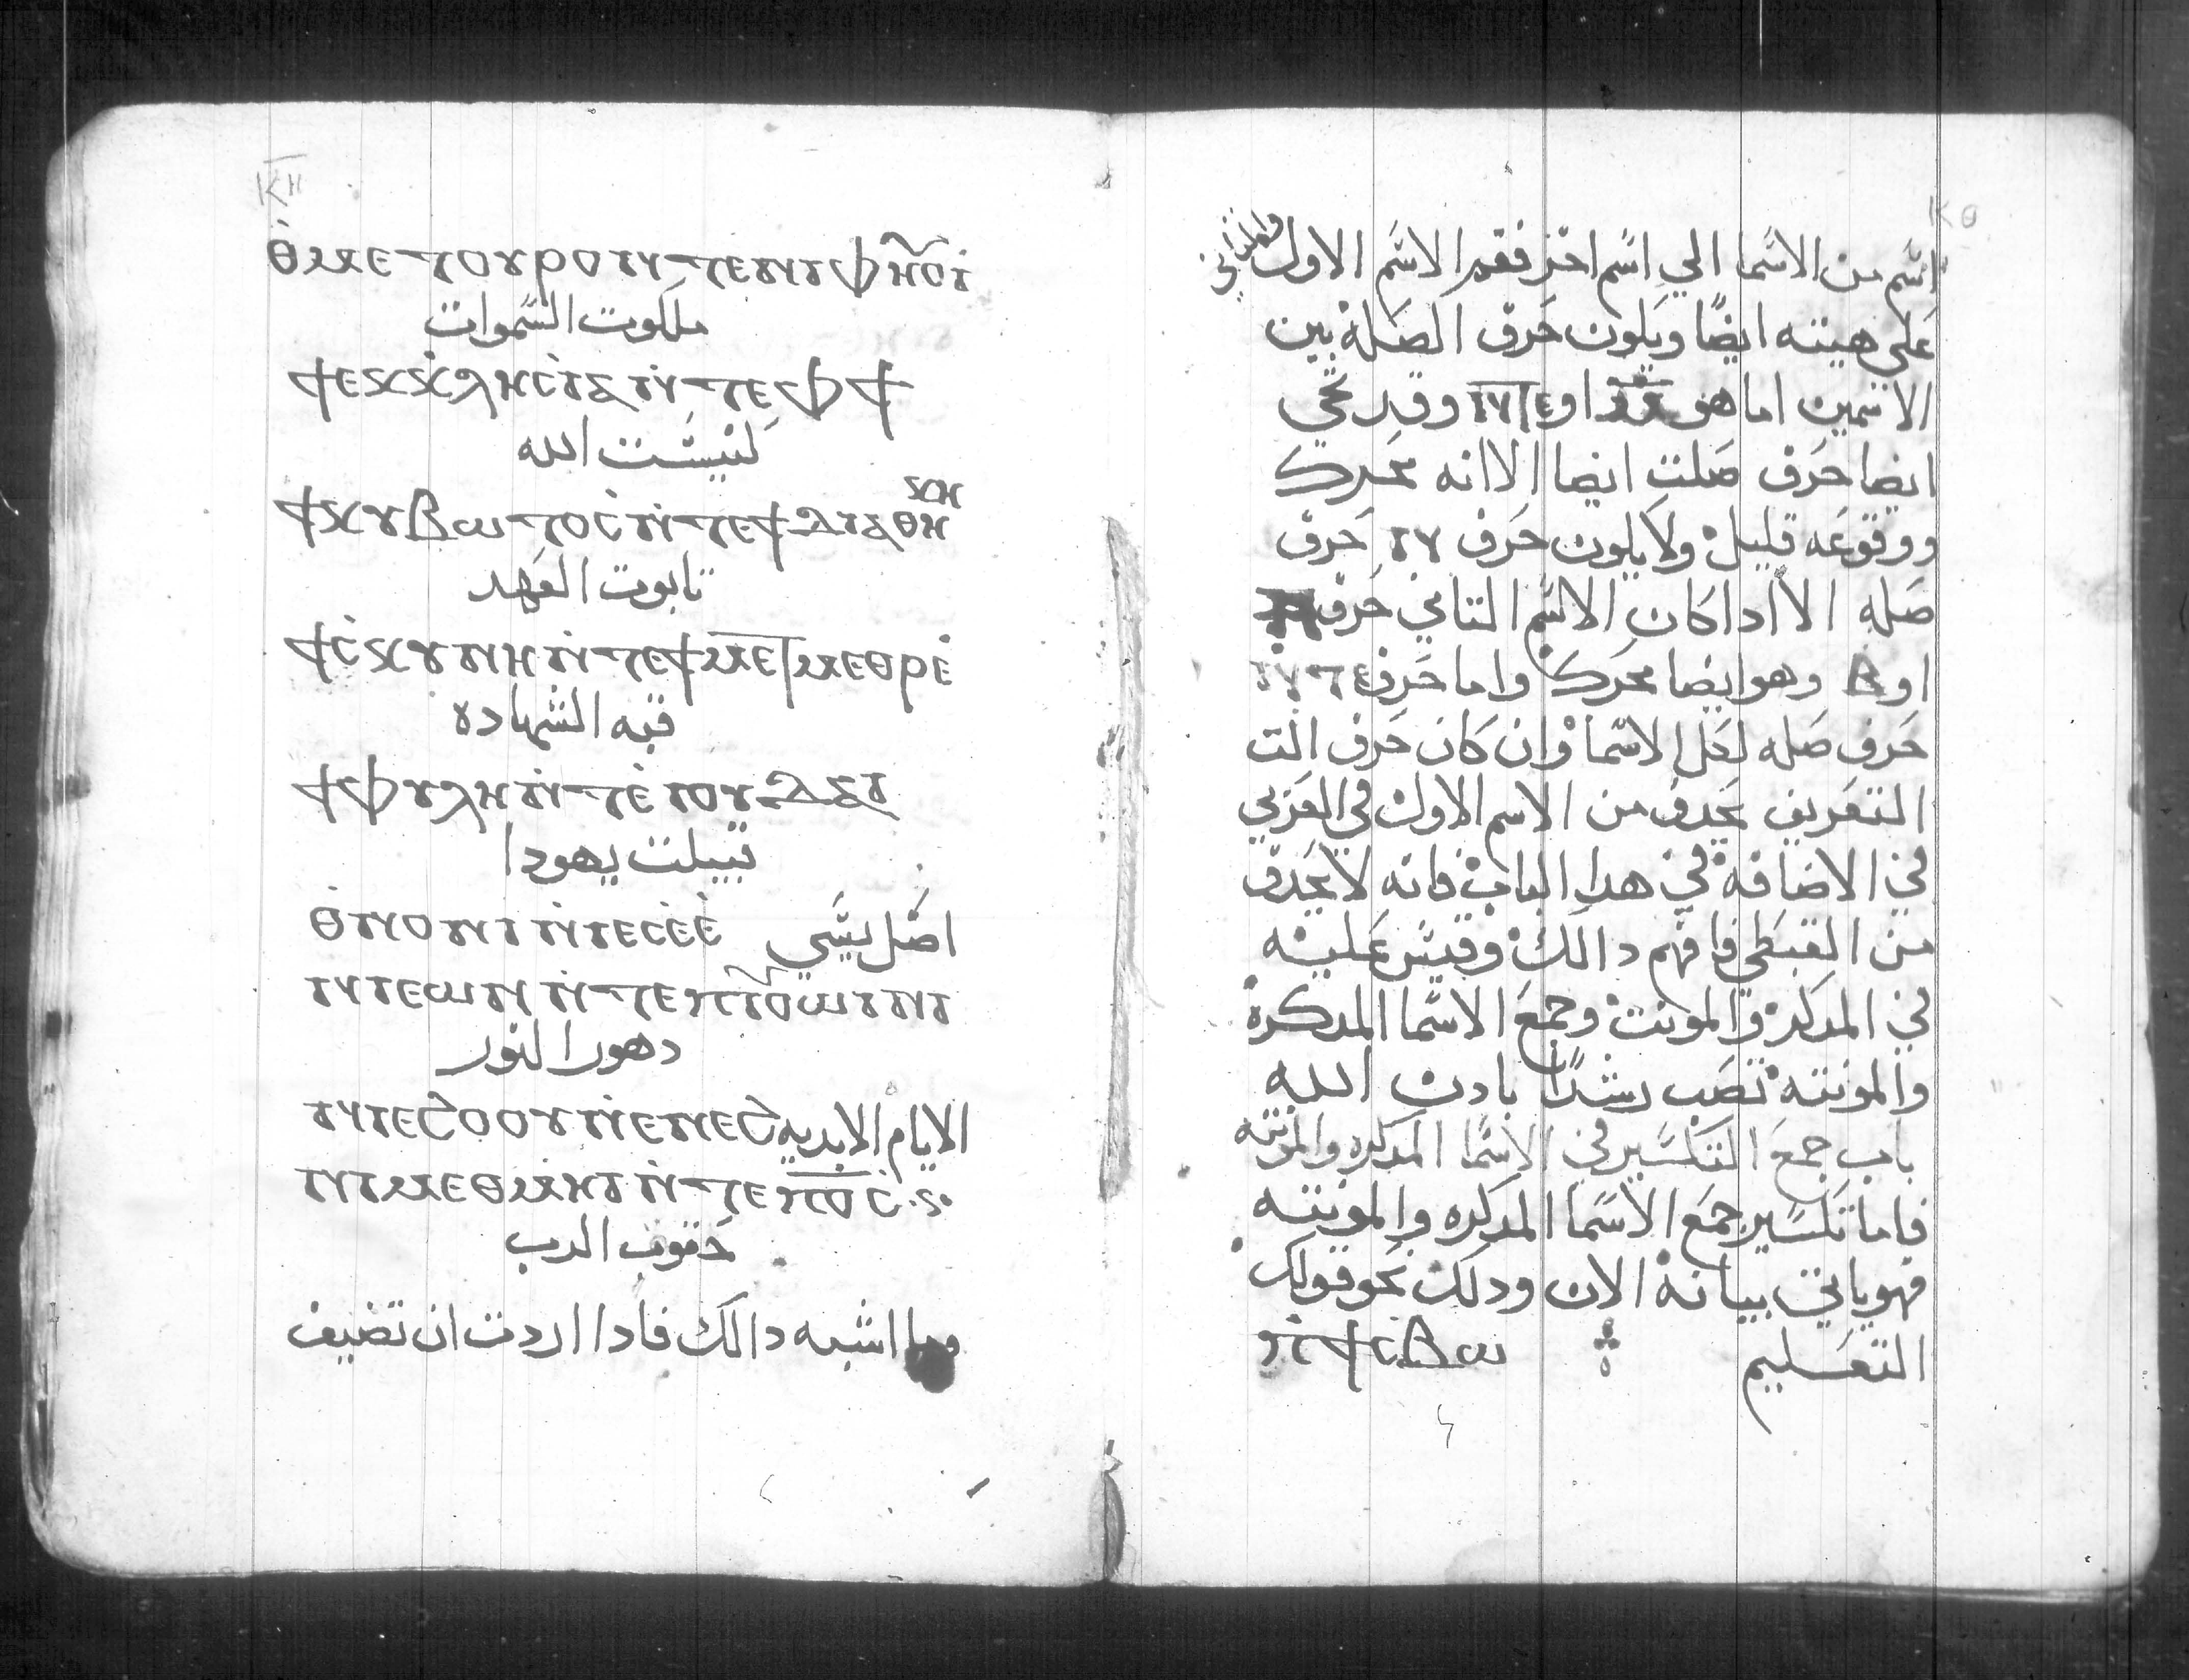 ⲕⲏ
ⲑⲙⲉⲧⲟⲩⲣⲟ ⲛⲧⲉⲛⲓⲫⲏⲟⲩⲓ
ملكوت السموات
ϯⲉⲕⲕⲗⲏⲥⲓⲁ ⲛⲧⲉ ⲫϯ
كنيست الله
ϯⲕⲩⲃⲱⲧⲟⲥ ⲛⲧⲉ ϯⲇⲓⲁⲑⲏⲕⲏ
تابوت العهد
ϯⲥⲕⲩⲛⲏ ⲛⲧⲉ ϯⲙⲉⲧⲙⲉⲑⲣⲉ
قبه الشهاده
ϯⲫⲩⲗⲏ ⲛⲧⲉ ⲓⲟⲩⲇⲁ
قبيلت يهودا
ⲑⲛⲟⲩⲛⲓ ⲛⲓⲉⲥⲥⲉ اصل يسي
ⲛⲓⲉⲱⲛ ⲛⲧⲉ ⲡⲓⲟⲩⲱⲓⲛⲓ
دهور النور
ⲛⲓⲉϩⲟⲟⲩ ⲛⲉⲛⲉϩ الايام الابديه
ⲛⲓⲙⲉⲑⲙⲏⲓ ⲛⲧⲉ ⲡⲟⲥ
حقوق الرب
وما اشبه دالك فادا اردت ان تضيف
ⲕⲑ
اسم من الاسما الي اسم اخر فقدم الاسم الاول والتاني
علي هيته ايضا ويكون حرف الصله بين
الاسمين اما هو او ⲛⲧⲉ وقد يجي
ايضا حرف صلت ايضا الا انه محرك
ووقوعه قليل ولا يكون حرف ⲛ حرف
صله الا ادا كان الاسم التاني حرف
او ⲃ وهو ايضا محرك واما حرف ⲛⲧⲉ
حرف صله لكل الاسما وان كان حرف الت
التعريف يحدف من الاسم الاول في العربي
في الاضافه في هدا الباب فانه لا يحدف
من القبطي فافهم دالك وقيس عليه
في المدكر والمونت وجمع الاسما المدكره
والمونته تصب رشدا بادن الله
باب جمع التكسير في الاسما المدكره والمونته
فاما تكسير جمع الاسما المدكره والمونته
فهو ياتي بيانه الان ودلك نحو قولك
التعليم ⲡⲓϯⲥⲃⲱ